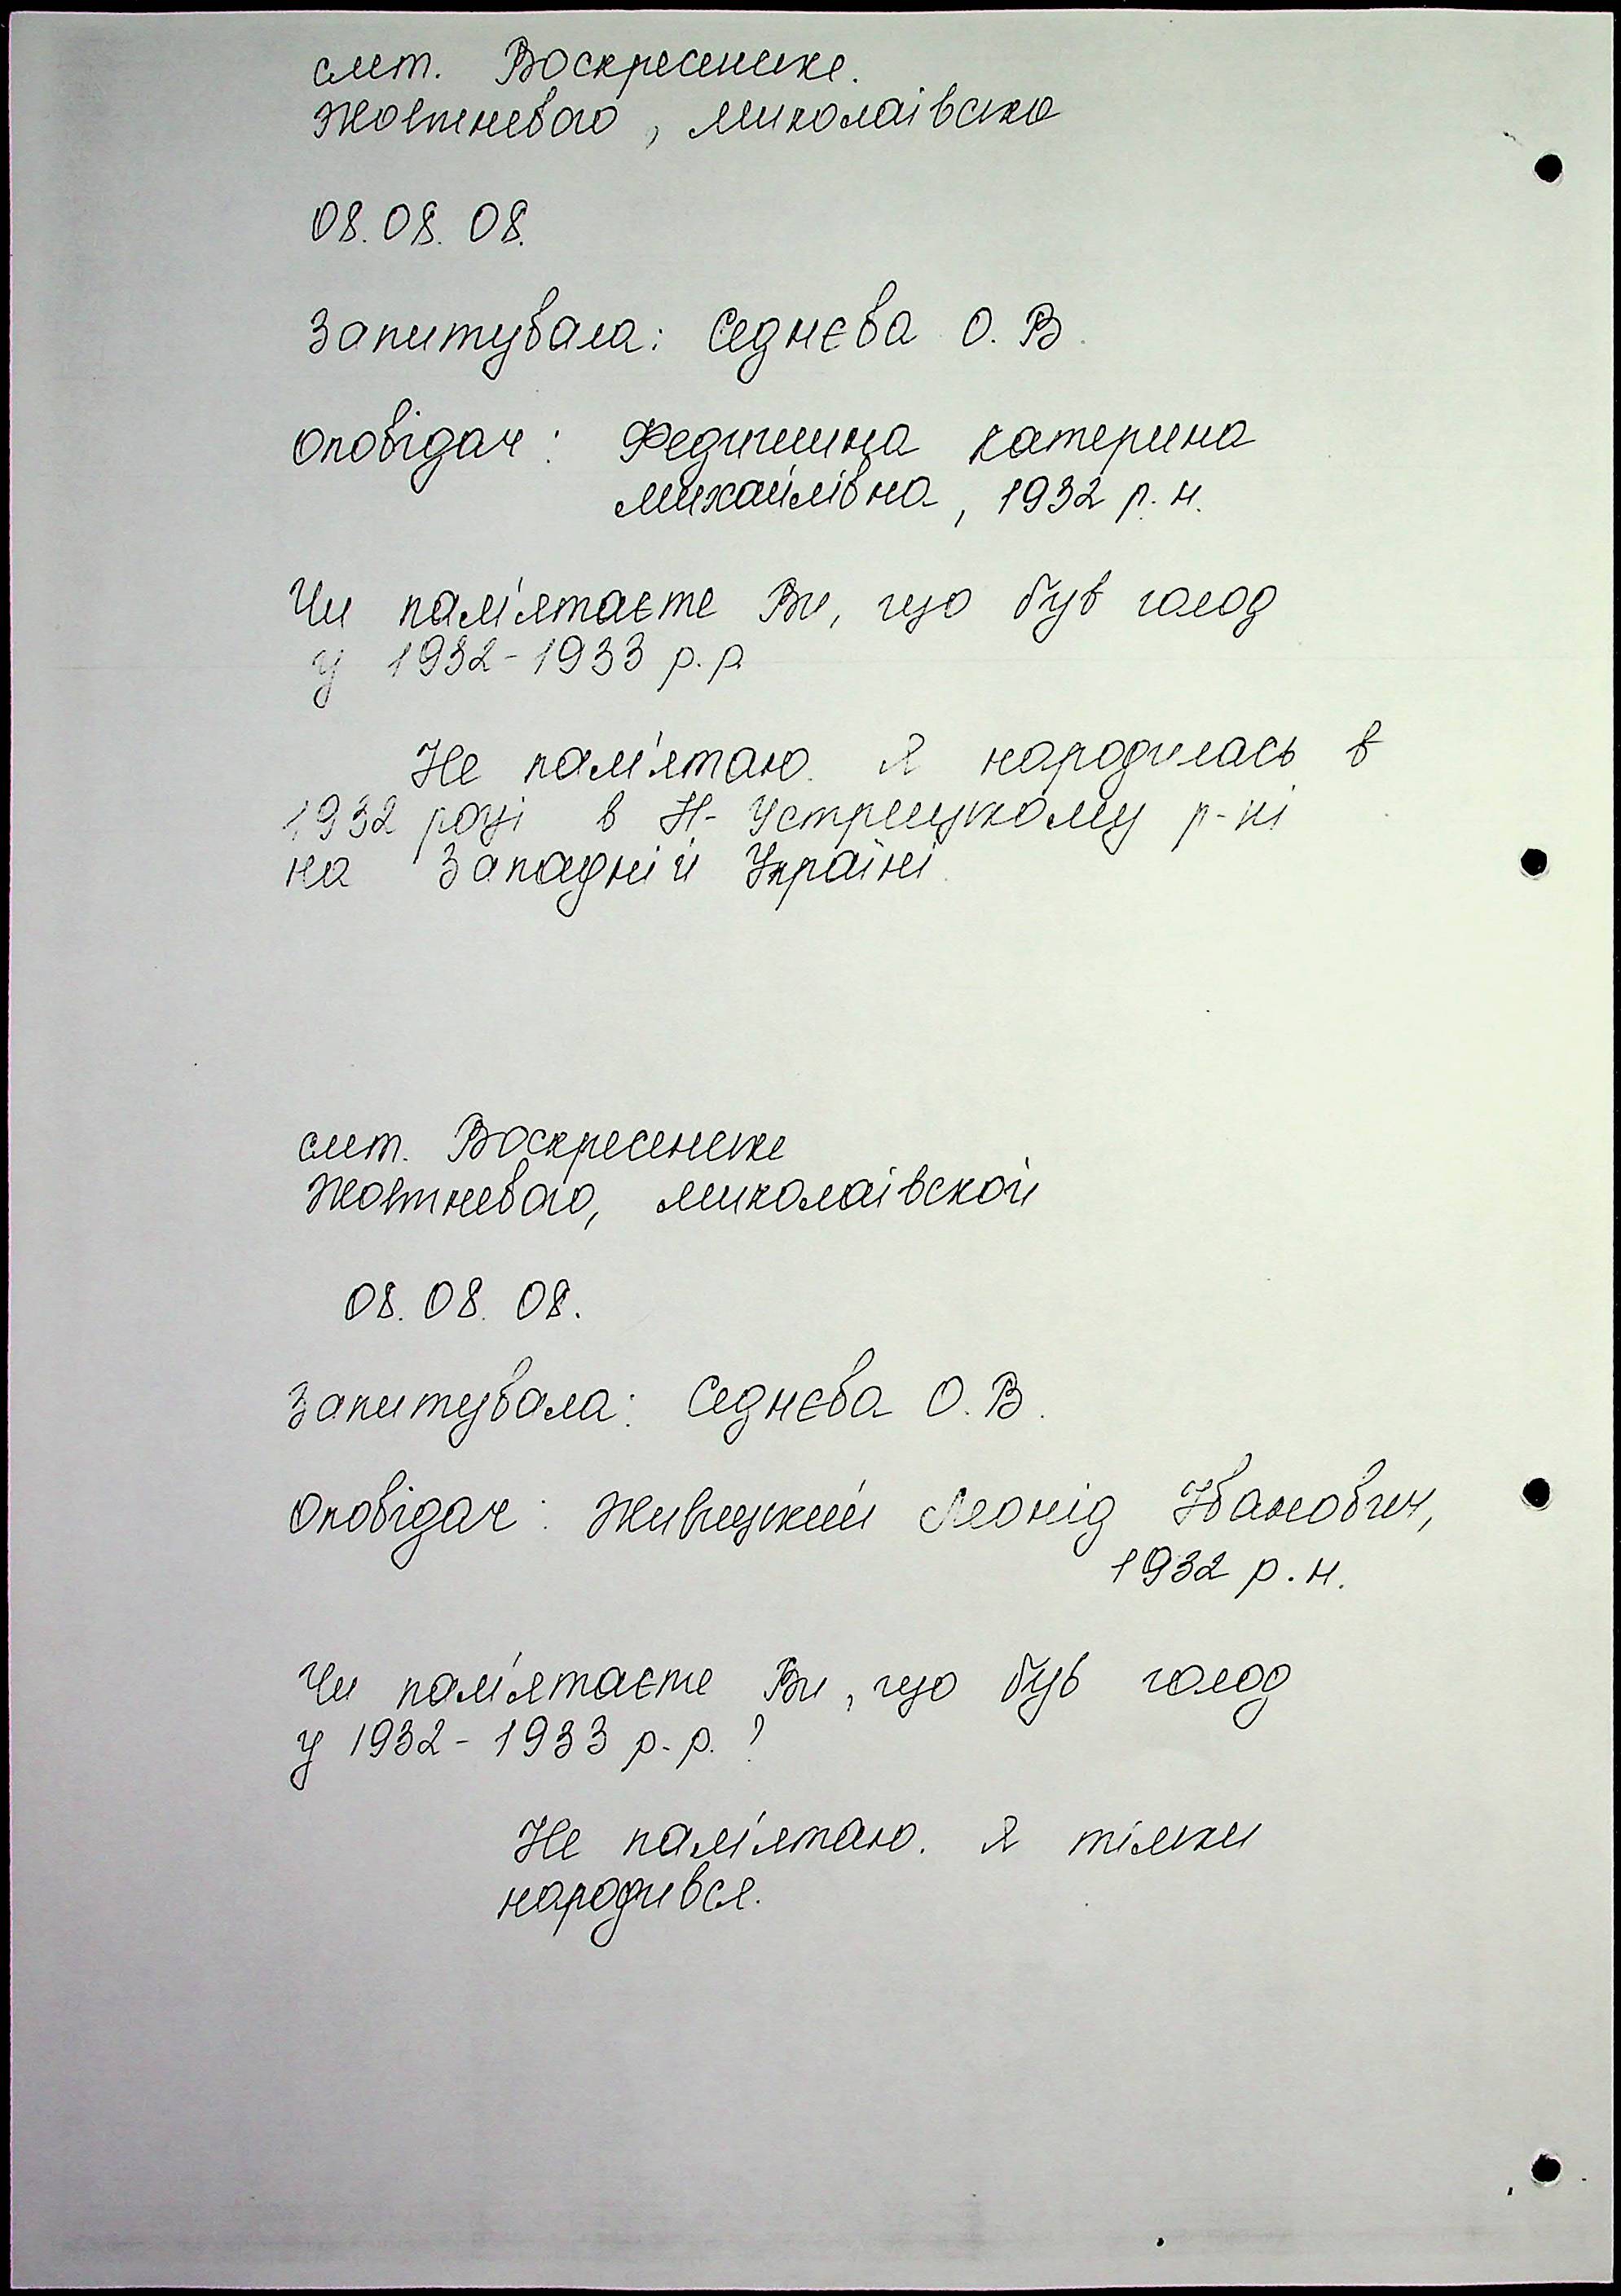 смт. Воскресенське.
Жовтневого, Миколаівська
08.08.08.
Запитувала: Седнєва О.В.
Оповідач: Федишина Катерина
Михайлівна, 1932 р.н.
Чи пам'ятаєте Ви, що був голод
у 1932-1933 р.р.
Не пам'ятаю. Я народилась в
1932 році в Н-Устрицькому р-ні
на Западній Україні.
смт. Воскресенське
Жовтневого, Миколаівской
08.08.08.
Запитувала: Седнєва О.В.
Оповідач: Живицький Леонід Іванович,
1932 р.н.
Чи пам'ятаєте Ви, що був голод
у 1932-1933 р.р.?
Не пам'ятаю. Я тільки
народився.